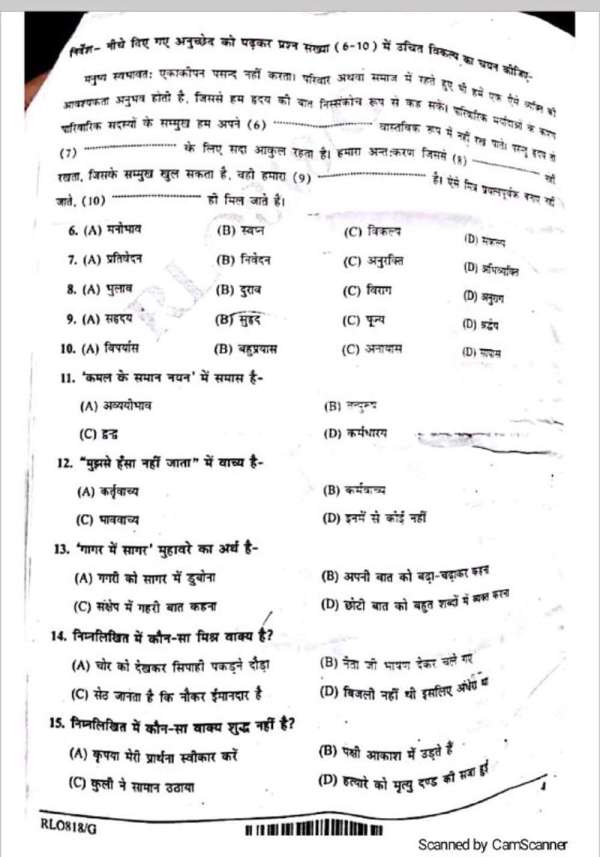 निर्देश– नीचे दिए गए अनुच्छेद को पढ़कर प्रश्न सख्या (6-10) में उचित विकल्प का चयन कीजिए–
मनुष्य स्वभावतः एकाकीपन पसन्द नहीं करता। परिवार अथवा समाज में रहते हुए भी हमें एक ऐसे व्यक्ति की
आवश्यकता अनुभव होती है, जिससे हम हृदय की बात निस्संकोच रूप से कह सकें। पारिवारिक मर्यादाओं के कारण
पारिवारिक सदस्यों के सम्मुख हम अपने (6) .................. वास्तविक रूप में नहीं रख पाते। परन्तु हृदय तो
(7) .................. के लिए सदा आकुल रहता है। हमारा अन्तःकरण जिससे (8) .................. नहीं
रखता, जिसके सम्मुख खुल सकता है, वही हमारा (9) .................. है। ऐसे मित्र प्रयत्नपूर्वक बनाए नहीं
जाते, (10) .................. ही मिल जाते है।
6. (A) मनोभाव (B) स्वप्न (C) विकल्प (D) संकल्प
7. (A) प्रतिवेदन (B) निवेदन (C) अनुरक्ति (D) अभिव्यक्ति
8. (A) भुलाव (B) दुराव (C) विराग (D) अनुराग
9. (A) सहृदय (B) सुहृद (C) पूज्य (D) श्रद्धेय
10. (A) विपर्यास (B) बहुप्रयास (C) अनायास (D) सायास
11. 'कमल के समान नयन' में समास है–
(A) अव्ययीभाव (B) तत्पुरुष
(C) द्वन्द्व (D) कर्मधारय
12. "मुझसे हँसा नहीं जाता" में वाच्य है–
(A) कर्तृवाच्य (B) कर्मवाच्य
(C) भाववाच्य (D) इनमें से कोई नहीं
13. 'गागर में सागर' मुहावरे का अर्थ है–
(A) गगरी को सागर में डुबोना (B) अपनी बात को बढ़ा-चढ़ाकर कहना
(C) संक्षेप में गहरी बात कहना (D) छोटी बात को बहुत शब्दों में व्यक्त करना
14. निम्नलिखित में कौन-सा मिश्र वाक्य है?
(A) चोर को देखकर सिपाही पकड़ने दौड़ा (B) नेता जी भाषण देकर चले गए
(C) सेठ जानता है कि नौकर ईमानदार है (D) बिजली नहीं थी इसलिए अंधेरा था
15. निम्नलिखित में कौन-सा वाक्य शुद्ध नहीं है?
(A) कृपया मेरी प्रार्थना स्वीकार करें (B) पक्षी आकाश में उड़ते हैं
(C) कुली ने सामान उठाया (D) हत्यारे को मृत्यु दण्ड की सजा हुई
4
RLO818/G
Scanned by CamScanner